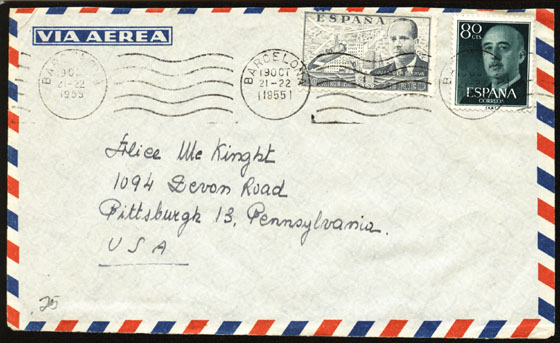 VIA AEREA
BARCELONA
19 OCT
21-22
1955
BARCELONA
19 OCT
21-22
(1955)
ESPAÑA
80 CTS
ESPAÑA
CORREOS
Alice Mc Kinght
1094 Devon Road
Pittsburgh 13, Pennsylvania.
USA
25